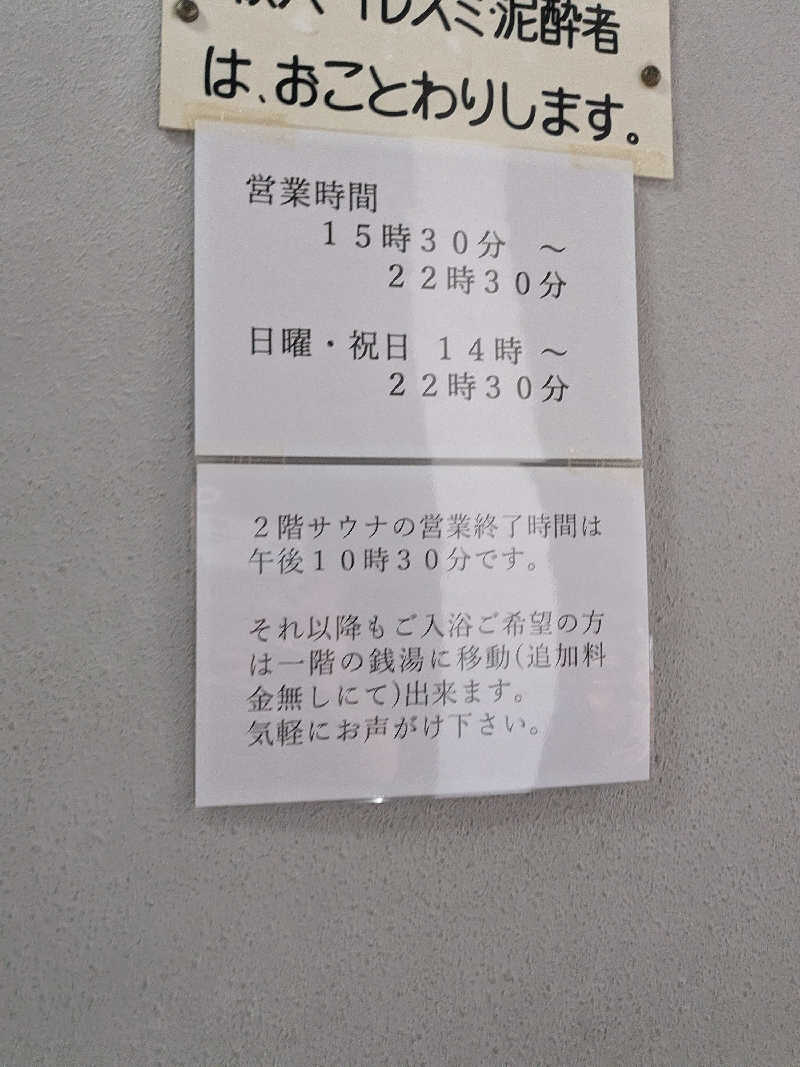 イレズミ・泥酔者
は、おことわりします。
営業時間
１５時３０分　～
２２時３０分
日曜・祝日　１４時　～
２２時３０分
２階サウナの営業終了時間は
午後１０時３０分です。
それ以降もご入浴ご希望の方
は一階の銭湯に移動(追加料
金無しにて)出来ます。
気軽にお声がけ下さい。